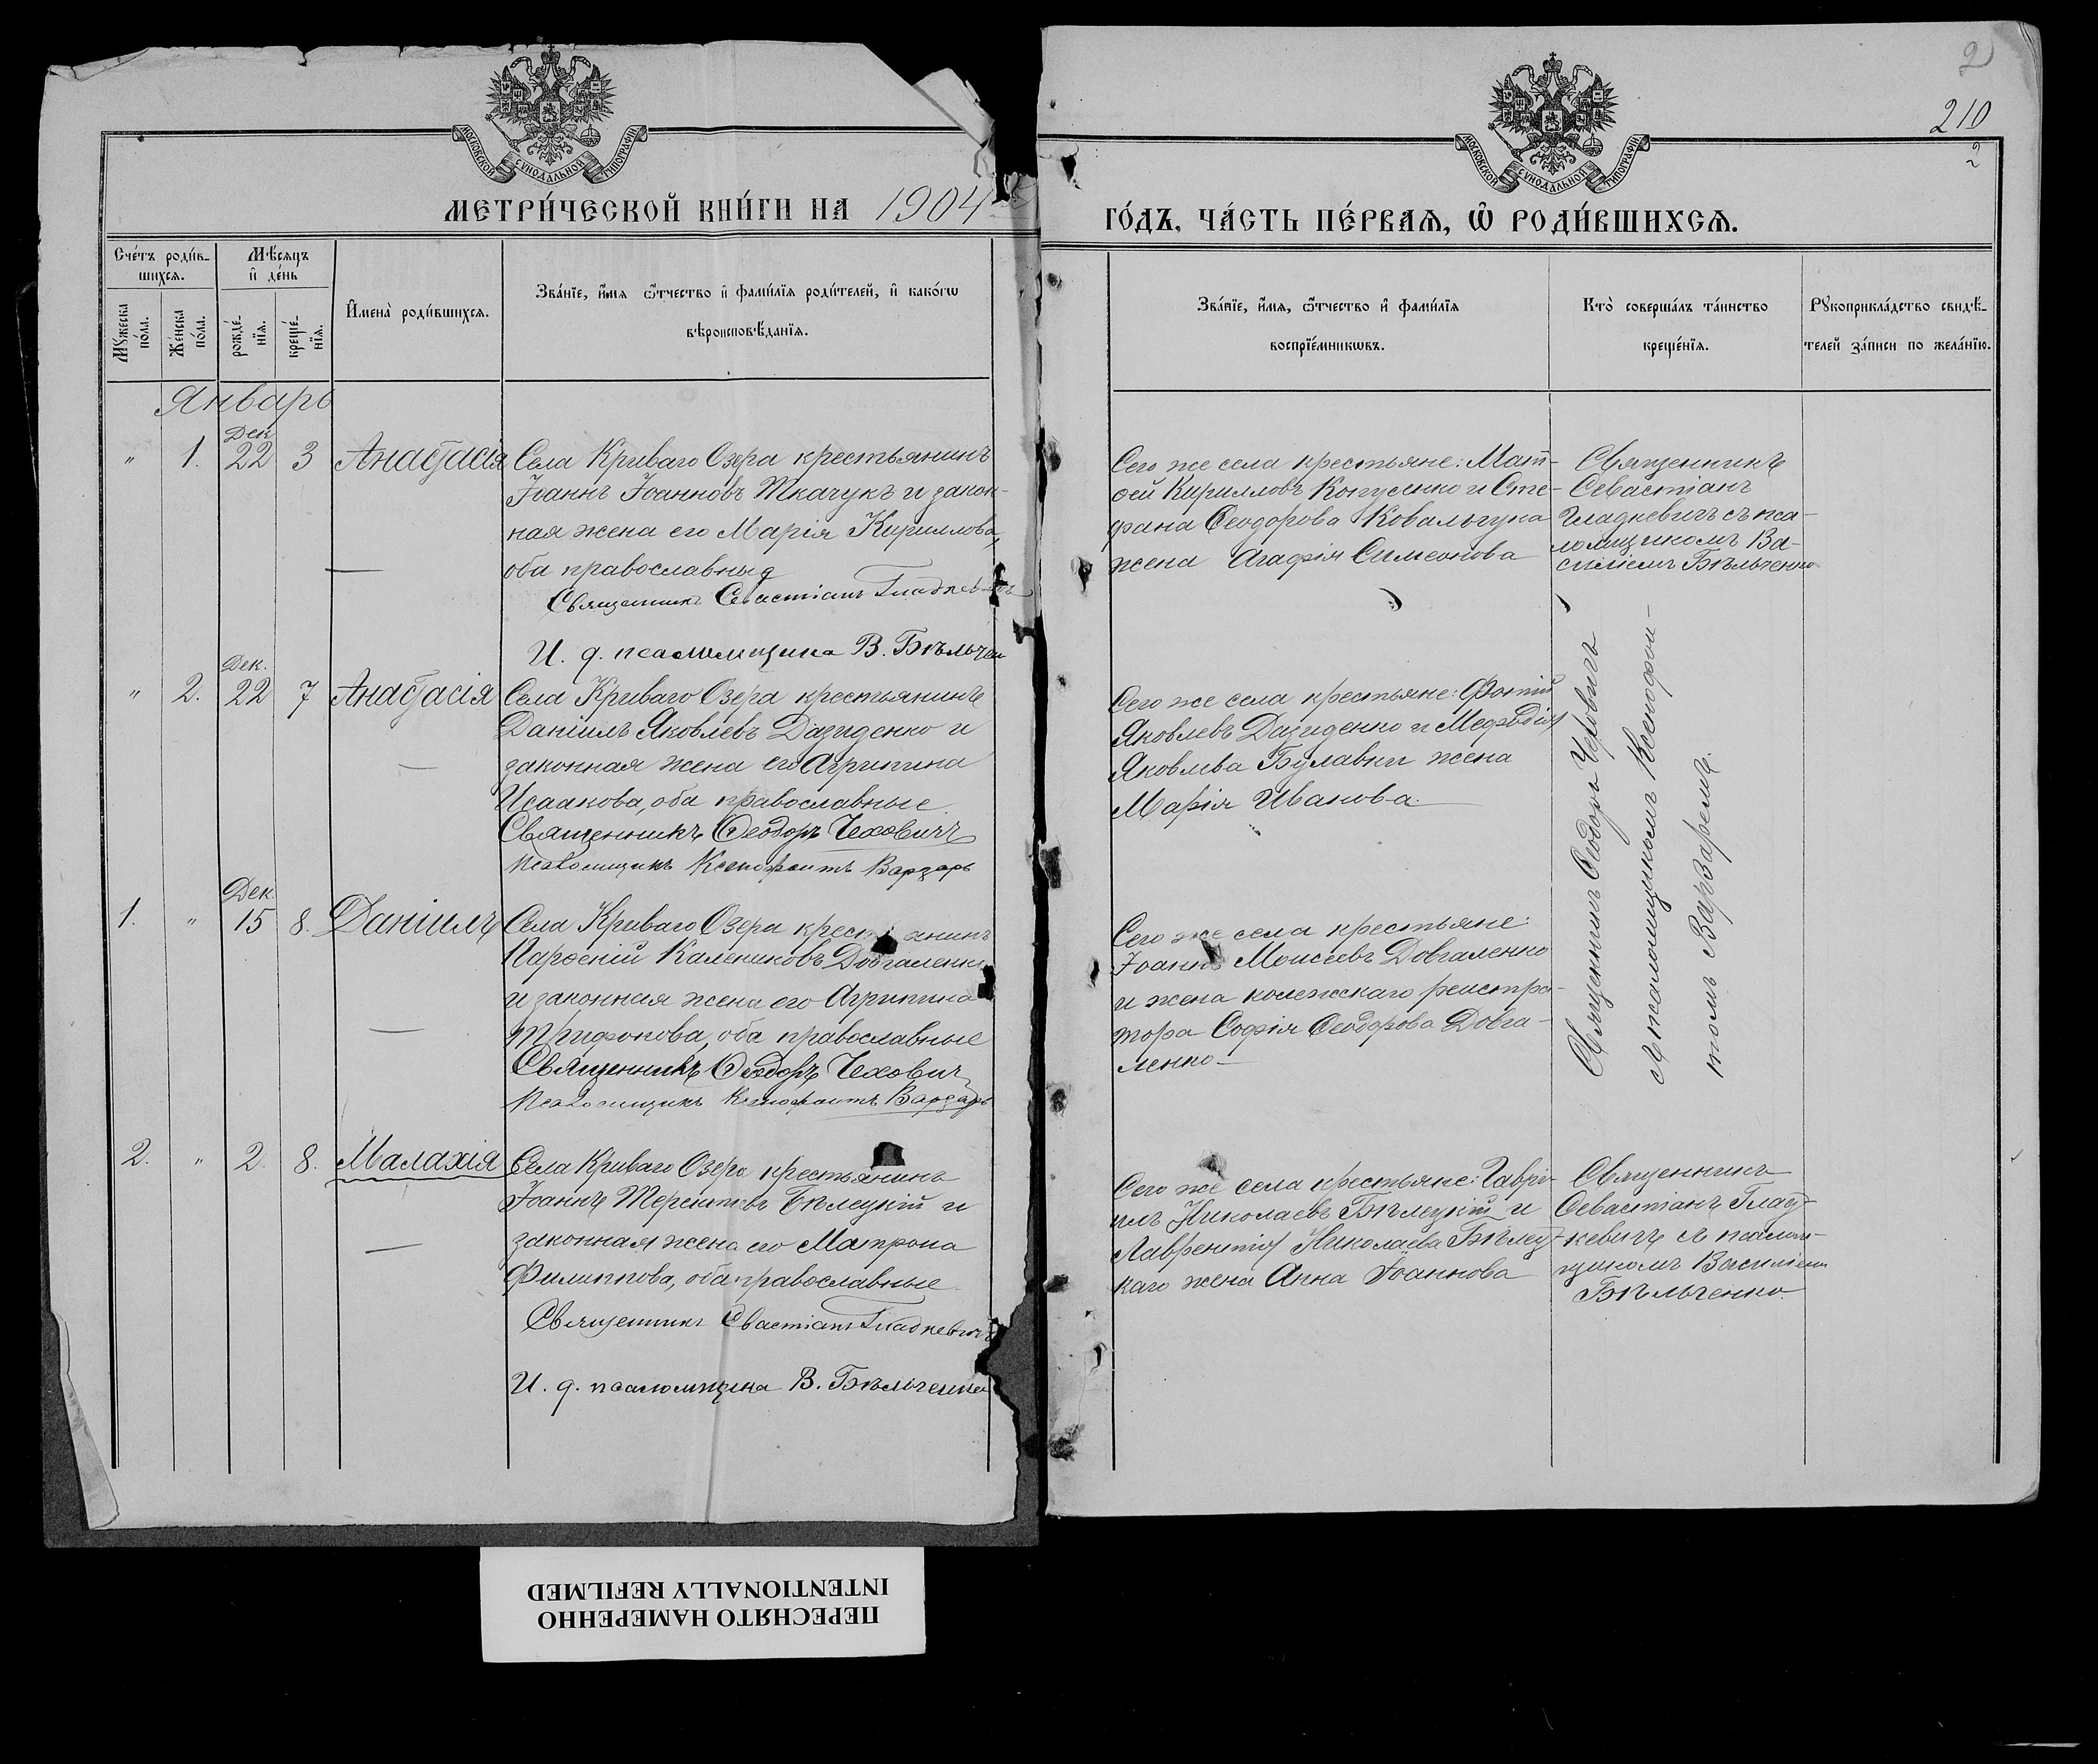 2
210
2
МОСКОВСКОЙ СѴНОДАЛЬНОЙ ТИПОГРАФІИ
МОСКОВСКОЙ СѴНОДАЛЬНОЙ ТИПОГРАФІИ
МЕТРИ́ЧЕСКОЙ КНИ́ГИ НА 1904
ГО́ДЪ, ЧА́СТЬ ПЕ́РВАѦ, Ѿ РОДИ́ВШИХСѦ.
Сче́тъ роди́в-
шихсѧ.
Мѣ́сѧцъ
и҆ де́нь
Мꙋ́жеска
по́ла.
Же́нска
по́ла.
рожде́-
нїѧ.
креще́-
нїѧ.
И҆мена̀ роди́вшихсѧ.
Зва́нїе, и҆́мѧ ѻ҆́тчество и҆ фами́лїѧ роди́телей, и҆ како́гѡ
вѣроисповѣ́данїѧ.
Зва́нїе, и҆́мѧ, ѻ҆́тчество и҆ фами́лїѧ
воспрїе́мникѡвъ.
Кто̀ соверша́лъ та́инство
креще́нїѧ.
Рꙋкоприкла́дство свидѣ́-
телей за́писи по жела́нїю.
Январь
Дек.
" 1. 22 3 Анастасія
Села Криваго Озера крестьянинъ
Іоаннъ Іоанновъ Ткачукъ и закон-
ная жена его Марія Кириллова,
оба православные
Священникъ Севастіанъ Гладкевичъ
И. д. псаломщика В. Бѣльчен
Сего же села крестьяне: Мат-
ѳей Кирилловъ Копусенко и Сте-
фана Ѳеодорова Ковальчука
жена Агафія Симеонова
Священникъ
Севастіанъ
Гладкевичъ съ пса-
ломщикомъ Ва-
силіемъ Бѣльченко
Дек.
" 2. 22 7 Анастасія
Села Криваго Озера крестьянинъ
Даніилъ Яковлевъ Дазиденко и
законная жена его Агрипина
Исаакова, оба православные
Священникъ Ѳеодоръ Чеховичъ
Псаломщикъ Ксенофонтъ Варзарь
Сего же села крестьяне: Фотій
Яковлевъ Дазиденко и Меѳодія
Яковлева Булавки жена
Марія Иванова.
Священникъ Ѳеодоръ Чеховичъ
съ псаломщикомъ Ксенофон-
томъ Варзаремъ.
Дек.
1. " 15 8. Даніилъ
Села Криваго Озера крестьянинъ
Парѳеній Калениковъ Довгаленко
и законная жена его Агрипина
Трифонова, оба православные
Священникъ Ѳеодоръ Чеховичъ
Псаломщикъ Ксенофонтъ Варзарь
Сего же села крестьяне:
Іоаннъ Моисеевъ Довгаленко
и жена колежскаго регистра-
тора Софія Ѳеодорова Довга-
ленко
2. " 2. 8. Малахія
Села Криваго Озера крестьянинъ
Іоаннъ Терентіевъ Бѣлецкій и
законная жена его Матрона
Филиппова, оба православные
Священникъ Севастіанъ Гладкевичъ
И. д. псаломщика В. Бѣльченко
Сего же села крестьяне: Гаврі-
илъ Николаевъ Бѣлецкій и
Лаврентія Николаева Бѣлец-
каго жена Анна Іоаннова
Священникъ
Севастіанъ Глад-
кевичъ съ псалом-
щикомъ Василіемъ
Бѣльченко.
ПЕРЕСНЯТО НАМЕРЕННО
INTENTIONALLY REFILMED